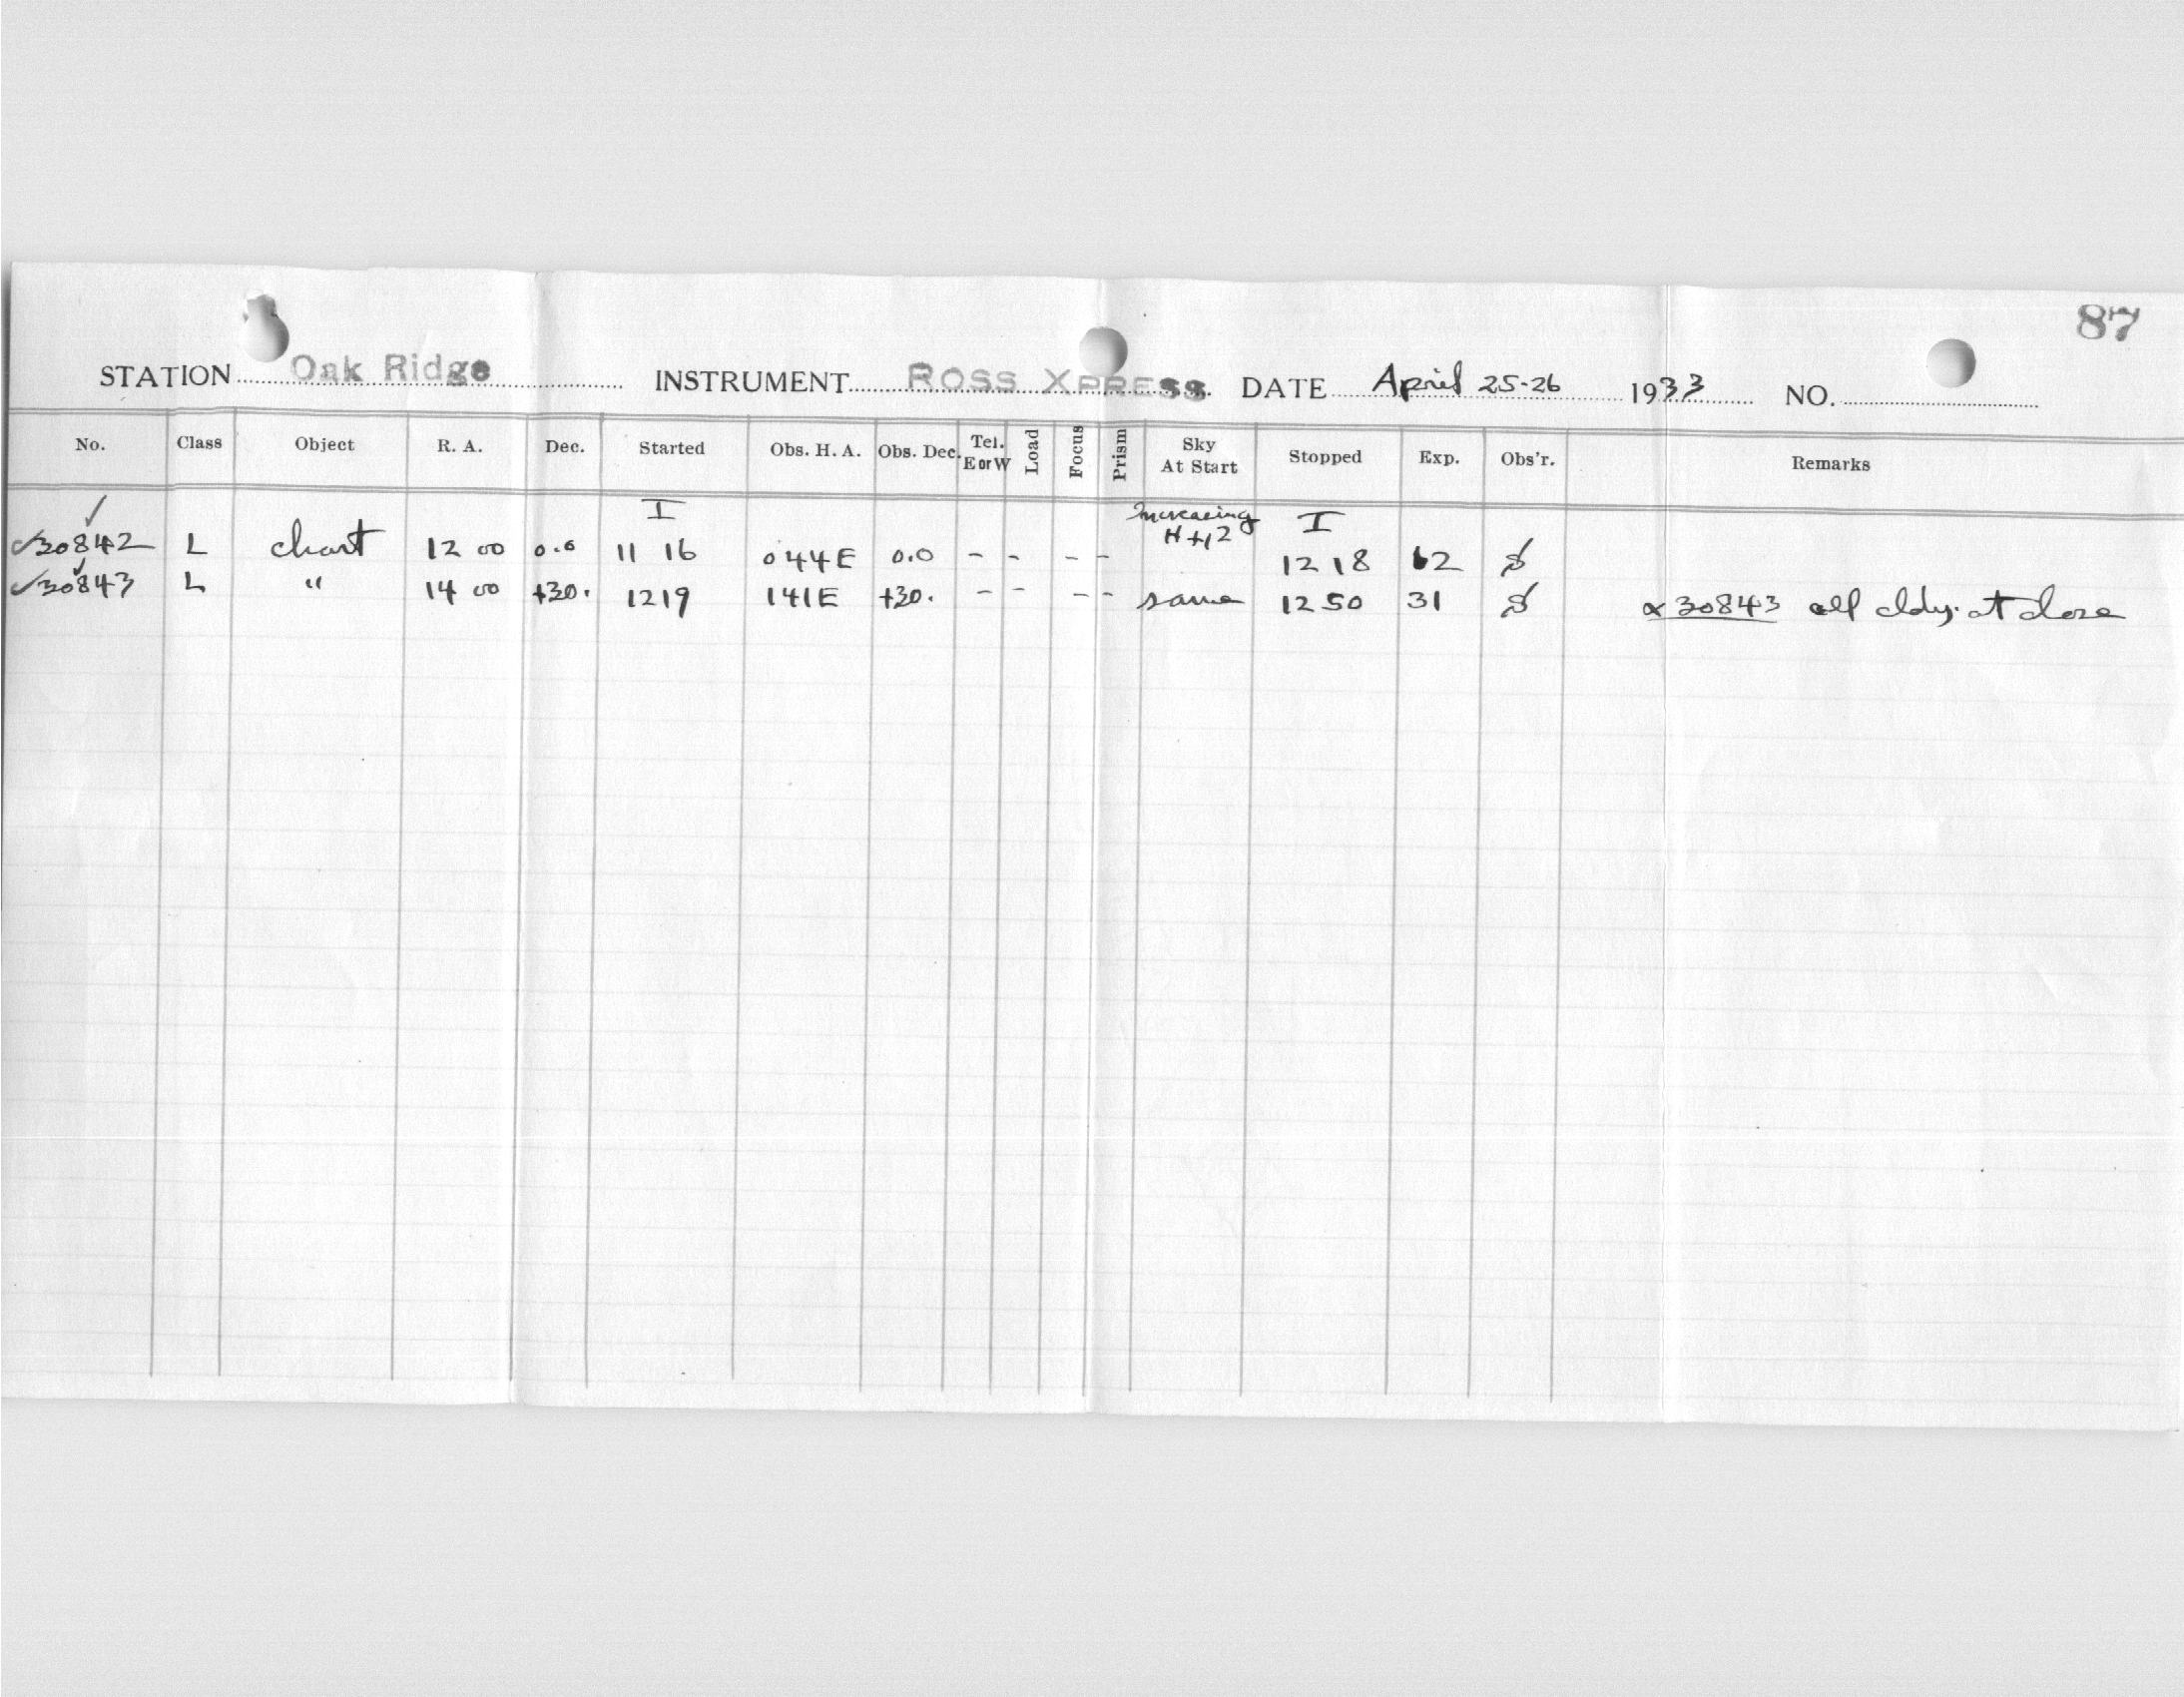 87
STATION Oak Ridge INSTRUMENT ROSS XPRESS DATE April 25-26 1933 NO.
No. Class Object R. A. Dec. Started Obs. H. A. Obs. Dec. Tel. E or W Load Focus Prism Sky At Start Stopped Exp. Obs'r. Remarks
I Increasing I
✓30842 L chart 12 00 0.0 11 16 044E 0.0 - - - - H +,2 12 18 62
✓30843 L " 14 00 +30. 1219 141E +30. - - - - same 1250 31 α 30843 all cldy. at close